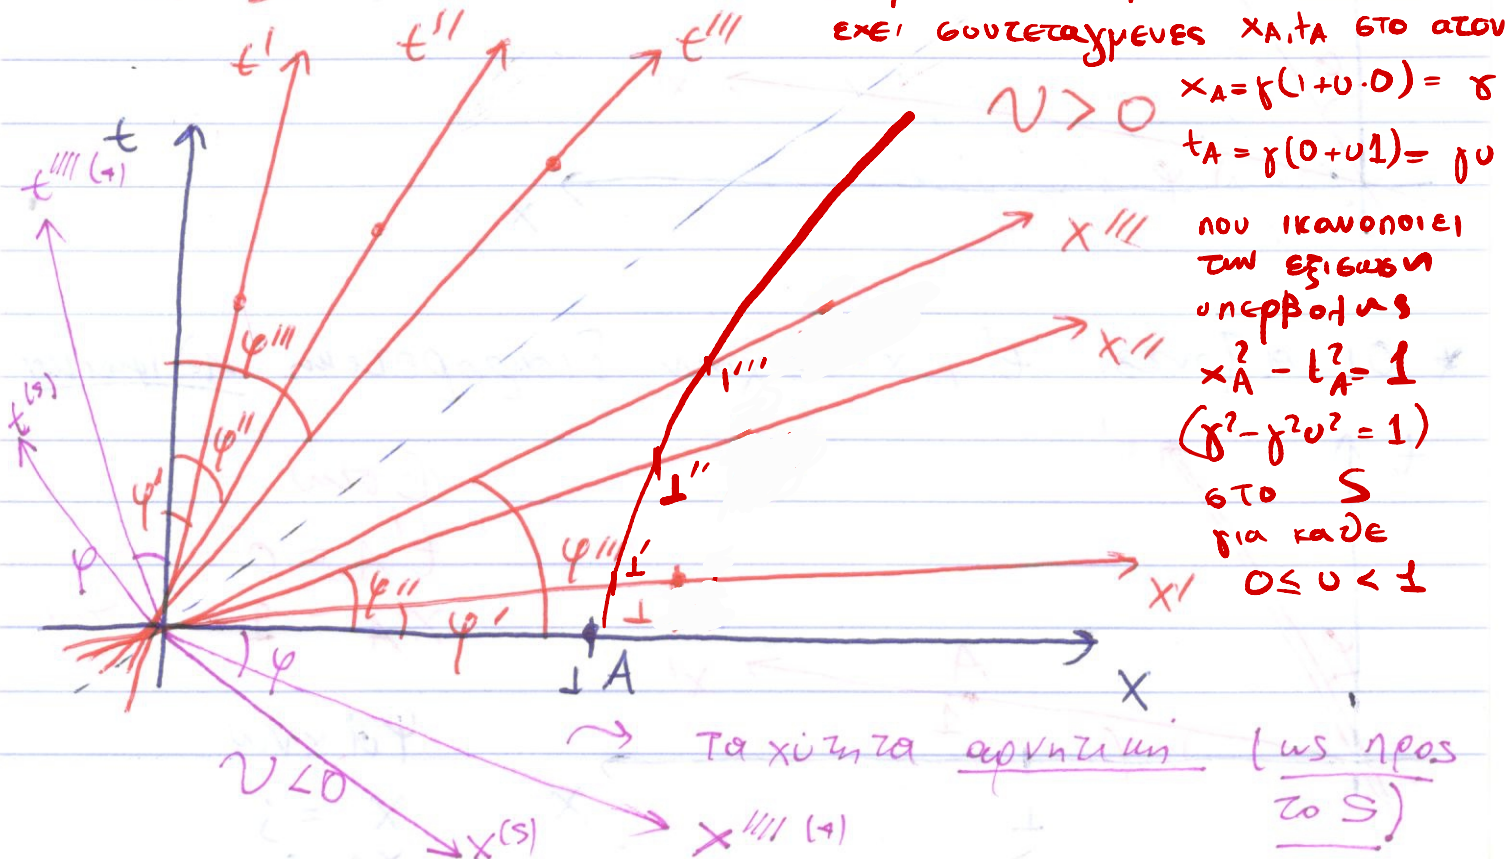 εχει συντεταγμενες x_A, t_A στο
x_A = γ(1+υ·0) = γ
t_A = γ(0+υ1) = γυ
που ικανοποιει
την εξισωση
υπερβολης
x_A² - t_A² = 1
(γ² - γ²υ² = 1)
στο S
για καθε
0 ≤ υ < 1
υ > 0
t'
t''
t'''
t
t'''' (4)
t^(5)
φ'''
φ''
φ'
φ
x'''
x''
x'
x
1'''
1''
1'
1
φ'''
φ''
φ'
φ
1 A
υ < 0
x^(5)
x'''' (4)
~> ταχύτητα αρνητική (ως προς
το S)